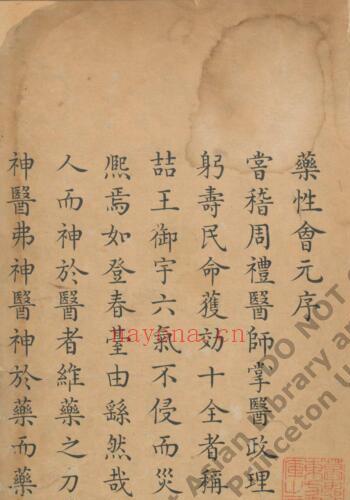 藥性會元序
嘗稽周禮醫師掌醫政理
躬壽民命獲効十全者稱
喆王御宇六氣不侵而災
熈焉如登春臺由繇然哉
人而神於醫者維藥之刀
神醫弗神醫神於藥而藥
nayona.cn
DO NOT
Asian Library a
Princeton U